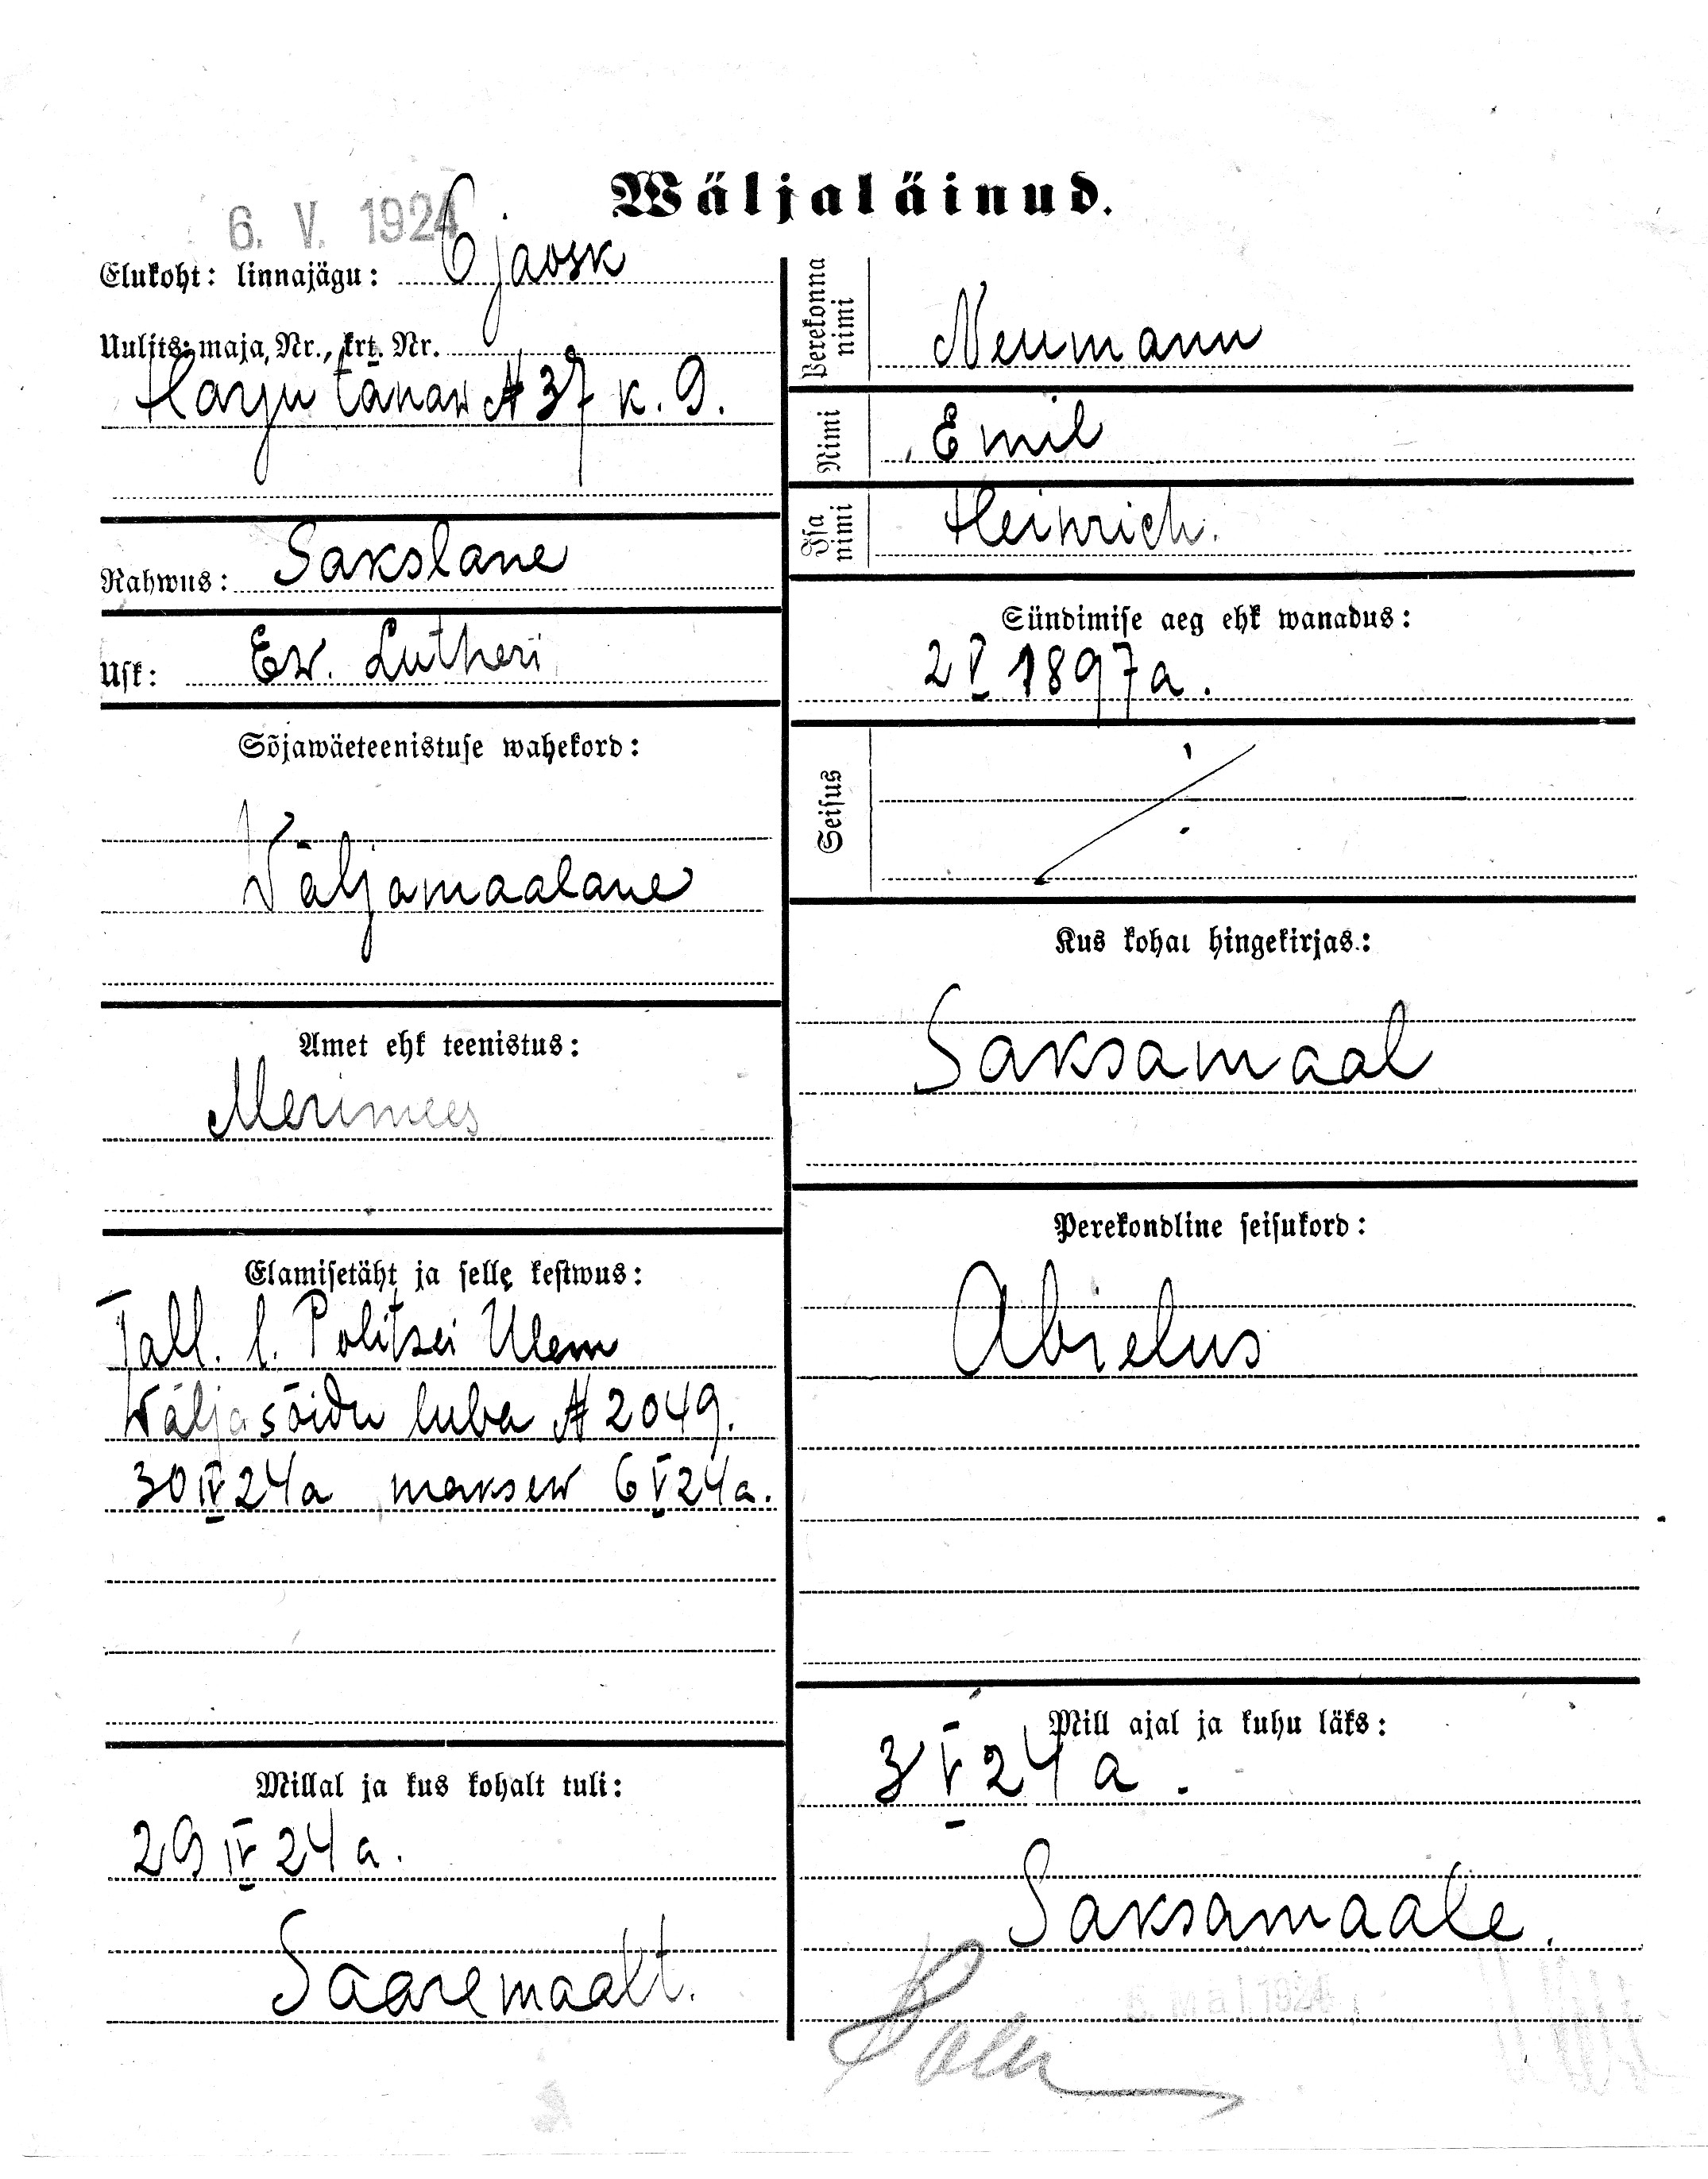 Wäljaläinud.
6. V. 1924
Elukoht: linnajägu: 6 jaosk
Uulits: maja, Nr., krt. Nr.
Harju tänaw № 37 k. 9.
Rahwus: Sakslane
Usk: Ew. Lutheri
Sõjawäeteenistuse wahekord:
Väljamaalane
Amet ehk teenistus:
Merimees
Elamisetäht ja selle kestwus:
Tall. l. Politsei Ülem
Wäljasõidu luba № 2049.
30 IV 24 a maksew 6 V 24 a.
Millal ja kus kohalt tuli:
29 IV 24 a.
Saaremaalt.
Perekonna nimi
Neumann
Nimi
Emil
Isa nimi
Heinrich.
Sündimise aeg ehk wanadus:
2 V 1897 a.
Seisus
Kus kohal hingekirjas:
Saksamaal
Perekondline seisukord:
Abielus
Mill ajal ja kuhu läks:
3 V 24 a.
Saksamaale.
Mai 1924